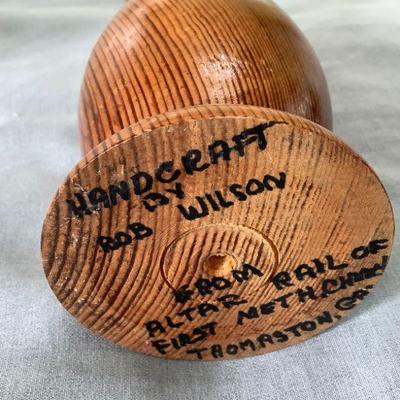 HANDCRAFT
BY
BOB WILSON
FROM
ALTAR RAIL OF
FIRST METH. CHURCH
THOMASTON, GA.